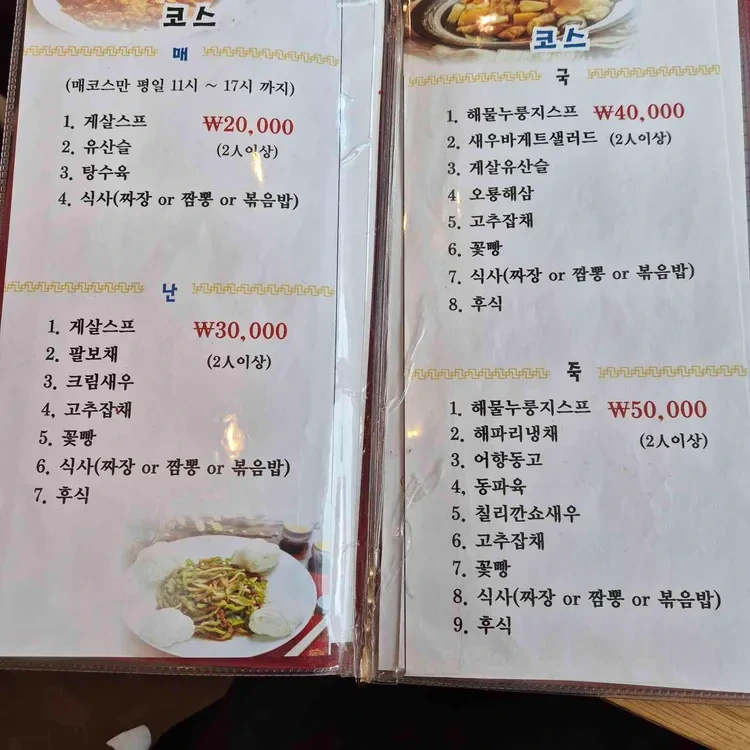 코스
매
(매코스만 평일 11시 ~ 17시 까지)
1. 게살스프 ₩20,000
2. 유산슬 (2人이상)
3. 탕수육
4. 식사(짜장 or 짬뽕 or 볶음밥)
난
1. 게살스프 ₩30,000
2. 팔보채 (2人이상)
3. 크림새우
4, 고추잡채
5. 꽃빵
6. 식사(짜장 or 짬뽕 or 볶음밥)
7. 후식
코스
국
1. 해물누룽지스프 ₩40,000
2. 새우바게트샐러드 (2人이상)
3. 게살유산슬
4. 오룡해삼
5. 고추잡채
6. 꽃빵
7. 식사(짜장 or 짬뽕 or 볶음밥)
8. 후식
죽
1. 해물누룽지스프 ₩50,000
2. 해파리냉채 (2人이상)
3. 어향동고
4, 동파육
5. 칠리깐쇼새우
6. 고추잡채
7. 꽃빵
8. 식사(짜장 or 짬뽕 or 볶음밥)
9. 후식